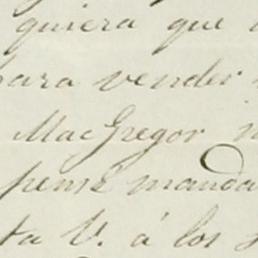 quiera que
para vender
MacGregor
pense manda
ta V. á los